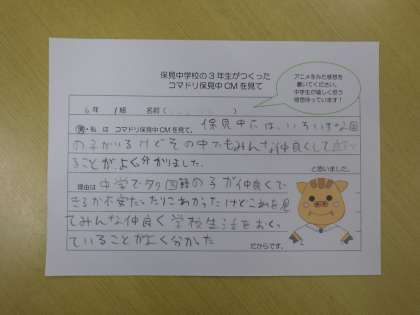 保見中学校の3年生がつくった
コマドリ保見中CMを見て
アニメをみた感想を
書いてください。
中学生が嬉しく思う
感想待っています！
6年 1組 名前（ ）
僕・私 は コマドリ保見中CMを見て、 保見中には、いろいろな国
の子がいるけどその中でもみんな仲良くして
ることがよく分かりました。
と思いました。
理由は 中学で外国籍の子が仲良くで
きるか不安だったりこわかったけどこれを見
てみんな仲良く学校生活をおくっ
ていることがよく分かった
だからです。